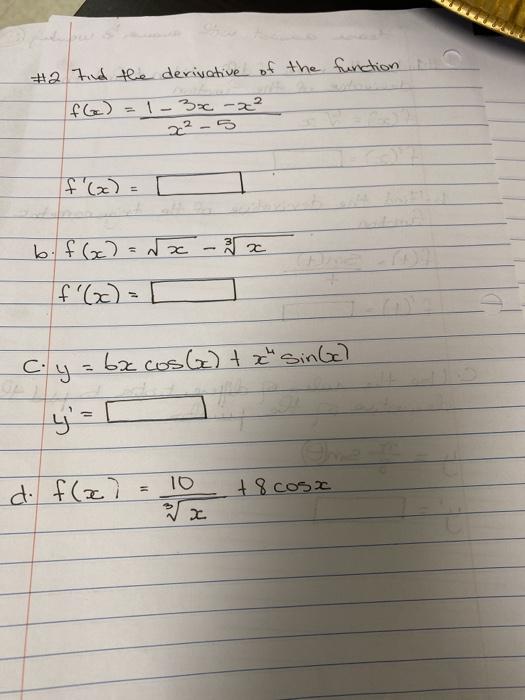 #2 Find the derivative of the function
f(x) = 1 - 3x - x²
x² - 5
f'(x) =
b. f(x) = √x - ∛x
f'(x) =
c. y = 6x cos(x) + x⁴ sin(x)
y' =
d. f(x) = 10 + 8 cosx
∛x